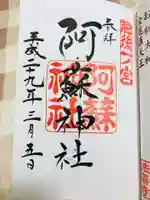 奉拝
肥後一ノ宮
阿蘇神社
阿蘇神社
平成二十九年三月五日